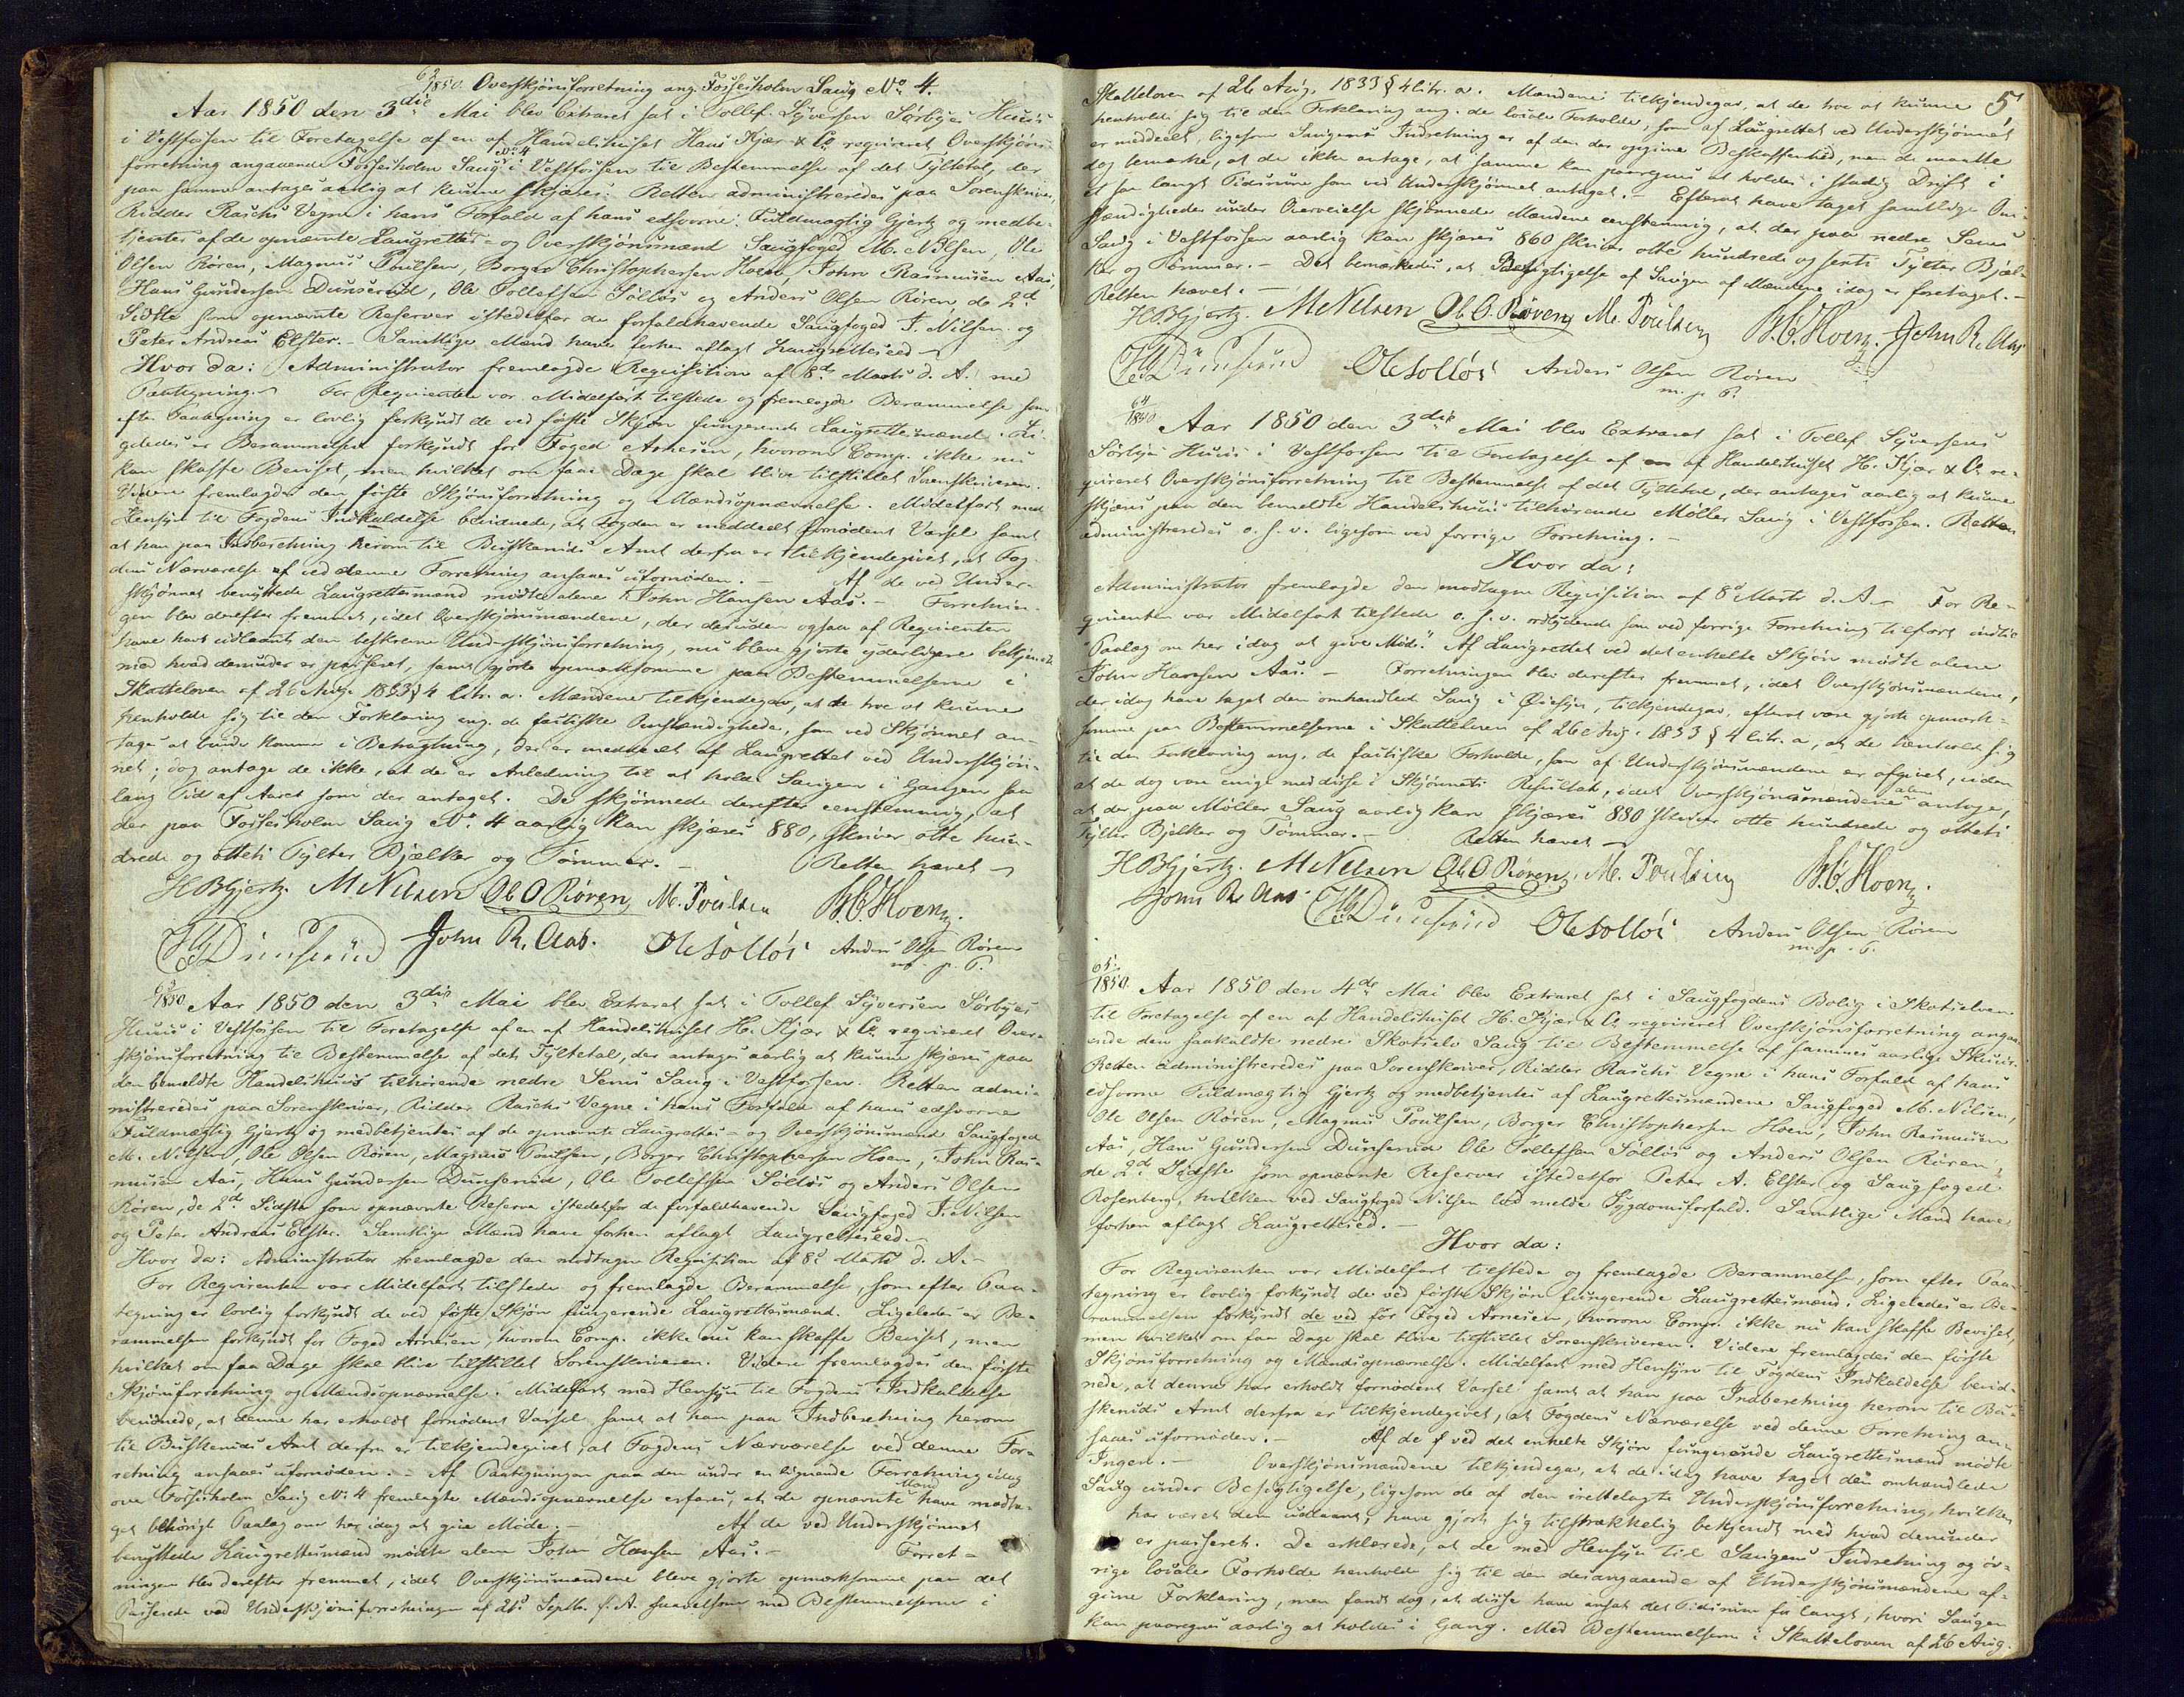 62/1850. Overskjønsforretning ang. Fossesholm Saug No 4.
Aar 1850 den 3die Mai blev Extraret sat i Tollef Syversen Sørbyes Huus
i Vestfossen til Foretagelse af en af Handelshuset Hans Kjær & Co reqvireret Overskjøns-
forretning angaaende Fossesholm Saug No 4 i Vestfossen til Bestemmelse af det Tyltetal, der
paa samme antages aarlig at kunne skjæres. Retten administreredes paa Sorenskriver,
Ridder Raschs Vegne i hans Forfald af hans edsvorne Fuldmægtig Gjertz og medbe-
tjentes af de opnævnte Laugrettes- og Overskjønsmænd Saugfoged M. Nilsen, Ole
Olsen Røren, Magnus Poulsen, Borger Christophersen Hoen, John Rasmussen Aas,
Hans Gundersen Dunserud, Ole Tollefsen Solløs og Anders Olsen Røren, de 2de
Sidste som opnævnte Reserver istedetfor de forfaldhavende Saugfoged T. Nilsen og
Peter Andreas Elster. - Samtlige Mænd have forhen aflagt Laugretteseed. -
Hvor da: Administrator fremlagde Reqvisition af 8de Marts d. A. med
Paategning. - For Reqvirenten var Midelfart tilstede og fremlagde Berammelse som
efter Paategning er lovlig forkyndt de ved første Skjøn fungerende Laugrettesmænd. Li-
geledes er Berammelsen forkyndt for Foged Arnesen, hvorom Comp. ikke nu
kan skaffe Beviset, men hvilket om faae Dage skal blive tilstillet Sorenskriveren.
Videre fremlagdes den første Skjønsforretning og Mændsopnævnelse. Midelfart med
Hensyn til Fogdens Indkaldelse bevidnede, at Fogden er meddeelt fornødent Varsel samt
at han paa Indberetning herom til Buskeruds Amt derfra er tilkjendegivet, at Fog-
dens Nærværelse af ved denne Forretning ansaaes ufornøden. - Af de ved Under-
skjønnet benyttede Laugrettesmænd mødte alene John Hansen Aas. - Forretnin-
gen blev derefter fremmet, idet Overskjønsmændene, der desuden ogsaa af Reqvirenten
have havt udlaant den beskrevne Underskjønsforretning, nu bleve gjorte yderligere bekjendt
med hvad derunder er passeret, samt gjorte opmærksomme paa Bestemmelserne i
Skatteloven af 26 Aug. 1833 § 4 litr. a. Mændene tilkjendegav, at de troe at kunne
henholde sig til den Forklaring ang. de factiske Omstændigheder, som ved Skjønnet an-
tages at burde komme i Betragtning, der er meddeelt af Laugrettet ved Underskjøn-
net; dog antage de ikke, at der er Anledning til at holde Saugen i Gangen saa
lang Tid af Aaret som der antaget. De skjønnede derefter eenstemmig, at
der paa Fossesholm Saug No 4 aarlig kan skjæres 880, skriver otte hun-
drede og otteti Tylter Bjælker og Tømmer. - Retten hævet -
HBGjertz. M Nilsen Ole O Røren M. Poulsen B.C. Hoen.
HGDunserud John R. Aas. Ole Solløs Anders Olsen Røren
m. p. P.
63/1850 Aar 1850 den 3die Mai blev Extraret sat i Tollef Syversen Sørbyes
Huus i Vestfossen til Foretagelse af en af Handelshuset H. Kjær & Co reqvireret Over-
skjønsforretning til Bestemmelse af det Tyltetal, der antages aarlig at kunne skjæres paa
den bemeldte Handelshuus tilhørende nedre Sems Saug i Vestfossen. Retten admi-
nistreredes paa Sorenskriver, Ridder Raschs Vegne i hans Forfald af hans edsvorne
Fuldmægtig Gjertz og medbetjentes af de opnævnte Laugrettes- og Overskjønsmænd Saugfoged
M. Nilsen, Ole Olsen Røren, Magnus Poulsen, Borger Christophersen Hoen, John Ras-
mussen Aas, Hans Gundersen Dunserud, Ole Tollefsen Solløs og Anders Olsen
Røren, de 2de Sidste som opnævnte Reserve istedetfor de forfaldhavende Saugfoged T. Nilsen
og Peter Andreas Elster. Samtlige Mænd have forhen aflagt Laugretteseed. -
Hvor da: Administrator fremlagde den modtagne Reqvisition af 8de Marts d. A. -
For Reqvirenten var Midelfart tilstede og fremlagde Berammelse, som efter Paa-
tegning er lovlig forkyndt de ved første Skjøn fungerende Laugrettesmænd. Ligeledes er Be-
rammelsen forkyndt for Foged Arnesen, hvorom Comp. ikke nu kan skaffe Beviset, men
hvilket om faa Dage skal blive tilstillet Sorenskriveren. Videre fremlagdes den første
Skjønsforretning og Mændsopnævnelse. Midelfart med Hensyn til Fogdens Indkaldelse
bevidnede, at denne har erholdt fornødent Varsel samt at han paa Indberetning herom
til Buskeruds Amt derfra er tilkjendegivet, at Fogdens Nærværelse ved denne For-
retning ansaaes ufornøden. - Af Paategningen paa den under en lignende Forretning idag
over Fossesholm Saug No 4 fremlagte Mændsopnævnelse erfares, at de opnævnte Mænd have modta-
get behørigt Paalæg om her idag at give Møde. - Af de ved Underskjønnet
benyttede Laugrettesmænd mødte alene John Hansen Aas. - Forret-
ningen blev derefter fremmet, idet Overskjønsmændene bleve gjorte opmærksomme paa det
Passerede ved Underskjønsforretningen af 21de Septbr. f. A. saavelsom med Bestemmelserne i
5
Skatteloven af 26 Aug. 1833 § 4 litr. a. Mændene tilkjendegav, at de troe at kunne
henholde sig til den Forklaring ang. de locale Forholde, som af Laugrettet ved Underskjønnet
er meddeelt, ligesom Saugens Indretning er af den der opgivne Beskaffenhed, men de maatte
dog bemærke, at de ikke antage, at samme kan paaregnes at holdes i stadig Drift i
et saa langt Tidsrum som ved Underskjønnet antaget. - Efterat have taget samtlige Om-
stændigheder under Overveielse skjønnede Mændene eenstemmig, at der paa nedre Sems
Saug i Vestfossen aarlig kan skjæres 860 skriver otte hundrede og sexti Tylter Bjæl-
ker og Tømmer. - Det bemærkedes, at Besigtigelse af Saugen af Mændene idag er foretaget. -
Retten hævet. -
HBGjertz. M Nilsen Ole O. Røren M. Poulsen B.C. Hoen. John R. Aas
HGDunserud Ole Solløs Anders Olsen Røren
m. p. P.
64/1850 Aar 1850 den 3die Mai blev Extraret sat i Tollef Syversens
Sørbyes Huus i Vestfossen til Foretagelse af en af Handelshuset H. Kjær & Co re-
qvireret Overskjønsforretning til Bestemmelse af det Tyltetal, der antages aarlig at kunne
skjæres paa den bemeldte Handelshuus tilhørende Møller Saug i Vestfossen. Retten
administreredes o. s. v. ligesom ved forrige Forretning. -
Hvor da:
Administrator fremlagde den modtagne Reqvisition af 8de Marts d. A. - For Re-
qvirenten var Midelfart tilstede o. s. v. ordlydende som ved forrige Forretning tilført indtil
"Paalæg om her idag at give Møde." Af Laugrettet ved det enkelte Skjøn mødte alene
John Hansen Aas. - Forretningen blev derefter fremmet, idet Overskjønsmændene,
der idag have taget den omhandlede Saug i Øiesyn, tilkjendegav, efterat være gjorte opmærk-
somme paa Bestemmelserne i Skatteloven af 26 Aug. 1833 § 4 litr. a, at de henholdt sig
til den Forklaring ang. de factiske Forholde, som af Underskjønsmændene er afgivet, uden
at de dog vare enige med disse i Skjønnets Resultat, idet Overskjønsmændene alene antage,
at der paa Møller Saug aarlig kan skjæres 880 skriver otte hundrede og otteti
Tylter Bjelker og Tømmer. - Retten hævet -
HBGjertz. M Nilsen Ole O. Røren. M. Poulsen B.C. Hoen.
John R. Aas HGDunserud Ole Solløs Anders Olsen Røren
m. p. P.
65/1850. Aar 1850 den 4de Mai blev Extraret sat i Saugfogdens Bolig i Skotselven
til Foretagelse af en af Handelshuset H. Kjær & Co reqvireret Overskjønsforretning angaa-
ende den saakaldte nedre Skotselv Saug til Bestemmelse af sammes aarlige Skuur.
Retten administreredes paa Sorenskriver, Ridder Raschs Vegne i hans Forfald af hans
edsvorne Fuldmægtig Gjertz og medbetjentes af Laugrettesmændene Saugfoged M. Nilsen,
Ole Olsen Røren, Magnus Poulsen, Borger Christophersen Hoen, John Rasmusen
Aas, Hans Gundersen Dunserud Ole Tollefsen Solløs og Anders Olsen Røren,
de 2de Sidste som opnævnte Reserver istedetfor Peter A. Elster og Saugfoged
Rosenberg, hvilken ved Saugfoged Nilsen lod melde Sygdomsforfald. Samtlige Mænd have
forhen aflagt Laugretteseed. -
Hvor da:
For Reqvirenten var Midelfart tilstede og fremlagde Berammelse, som efter Paa-
tegning er lovlig forkyndt de ved første Skjøn fungerende Laugrettesmænd. Ligeledes er Be-
rammelsen forkyndt de ved for Foged Arnesen, hvorom Comp. ikke nu kan skaffe Beviset,
men hvilket om faa Dage skal blive tilstillet Sorenskriveren. Videre fremlagdes den første
Skjønsforretning og Mændsopnævnelse. Midelfart med Hensyn til Fogdens Indkaldelse bevid-
nede, at denne har erholdt fornødent Varsel samt at han paa Indberetning herom til Bu-
skeruds Amt derfra er tilkjendegivet, at Fogdens Nærværelse ved denne Forretning an-
saaes ufornøden. - Af de f ved det enkelte Skjøn fungerende Laugrettesmænd mødte
Ingen. - Overskjønsmændene tilkjendegav, at de idag have taget den omhandlede
Saug under Besigtigelse, ligesom de af den irettelagte Underskjønsforretning, hvilken
har været dem udlaant, have gjort sig tilstrækkelig bekjendt med hvad derunder
er passeret. De erklærede, at de med Hensyn til Saugens Indretning og øv-
rige locale Forholde henholde sig til den desangaaende af Underskjønsmændene af-
givne Forklaring, men fandt dog, at disse have ansat det Tidsrum for langt, hvori Saugen
kan paaregnes aarlig at holdes i Gang. Med Bestemmelsen i Skatteloven af 26 Aug.